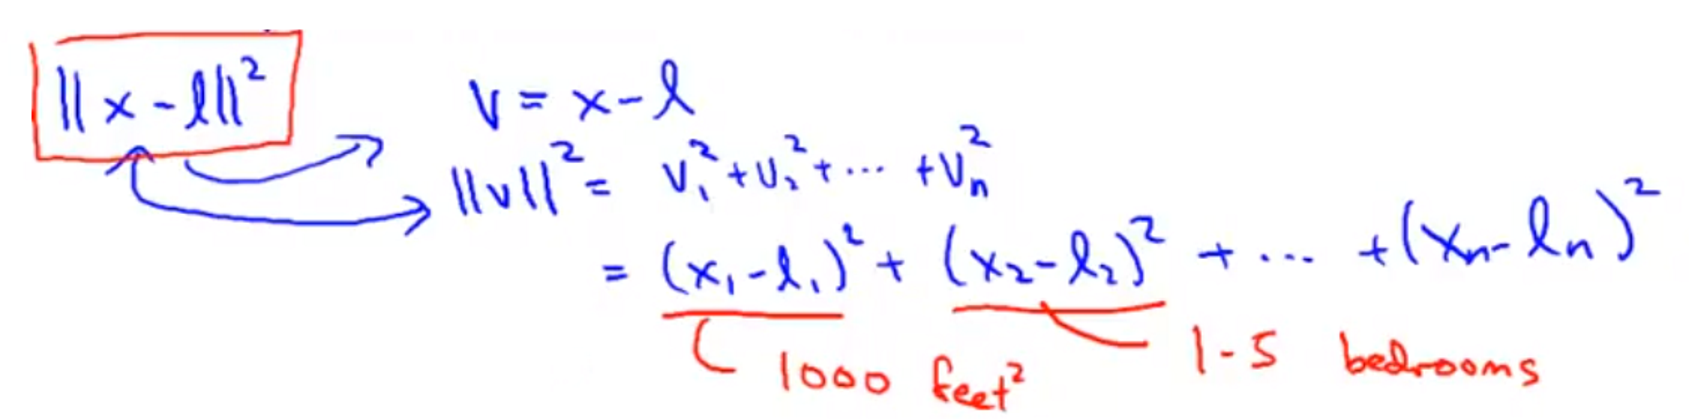 ||x - l||²
v = x - l
||v||² = v₁² + v₂² + ... + vₙ²
= (x₁ - l₁)² + (x₂ - l₂)² + ... + (xₙ - lₙ)²
1000 feet²
1-5 bedrooms